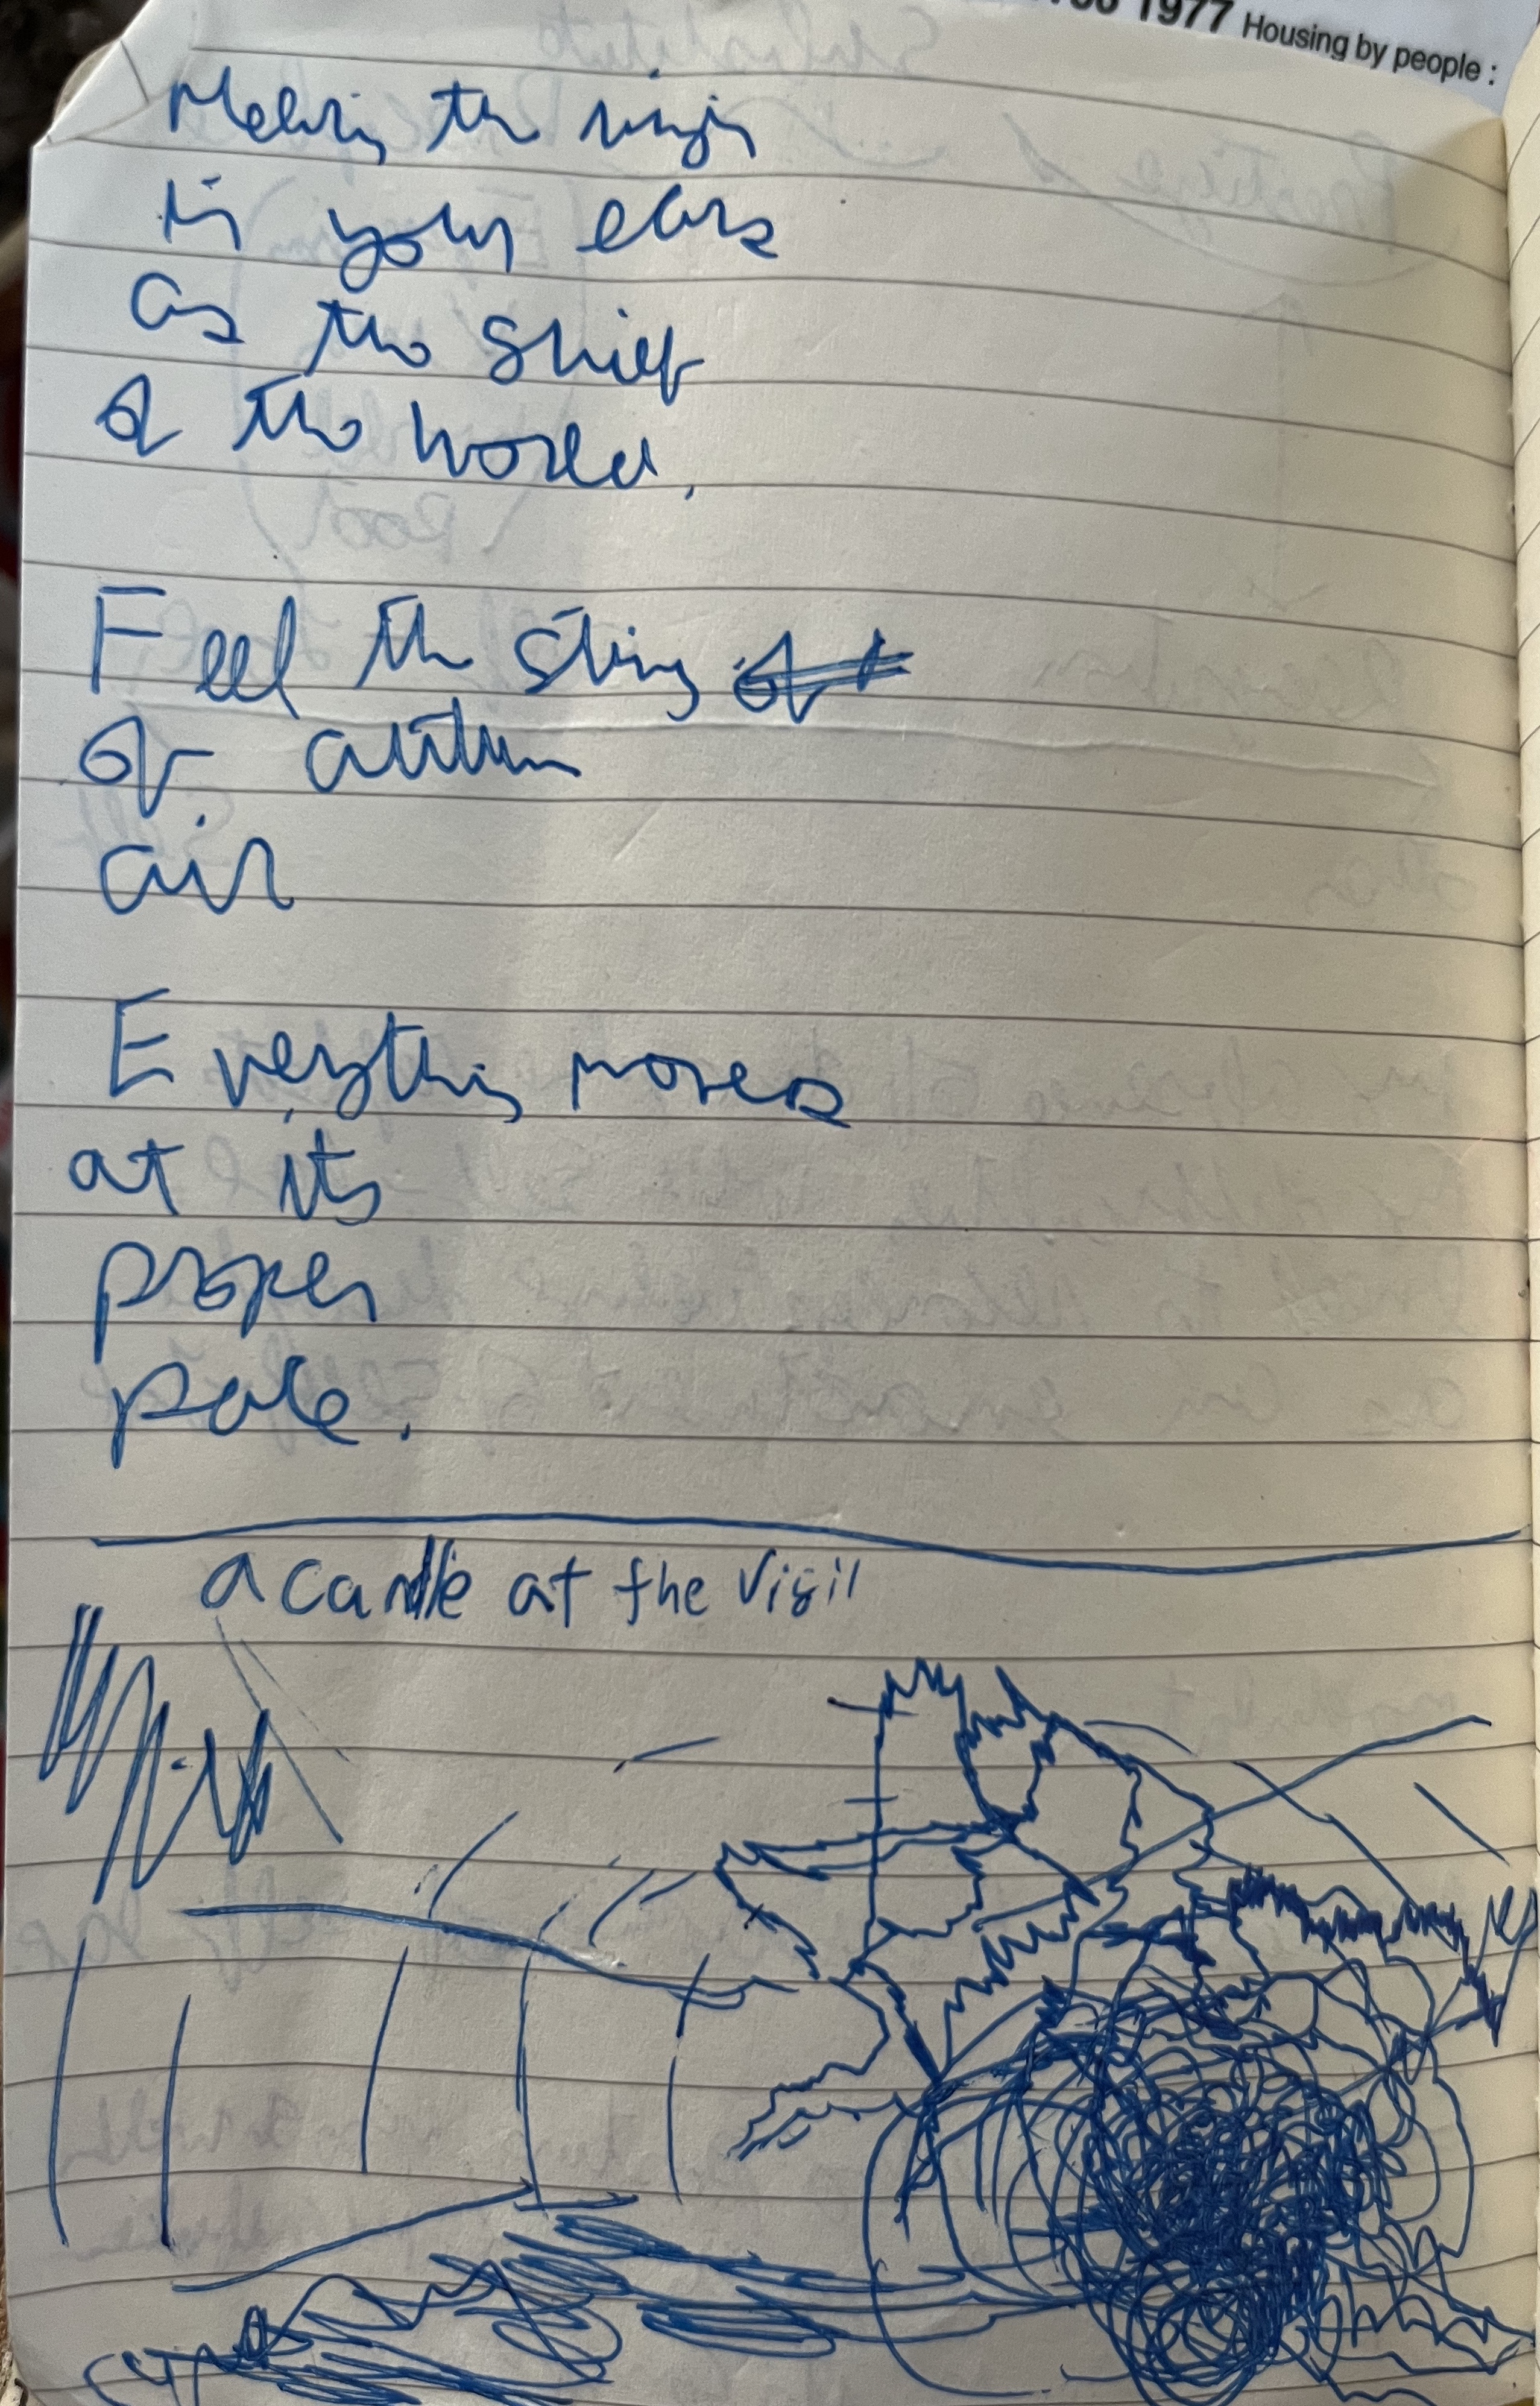 1977 Housing by people :
the ringing
in your ears
as the
of the world.
Feel the sting
of autumn
air
Everything moves
at its
proper
pace.
a candle at the vigil